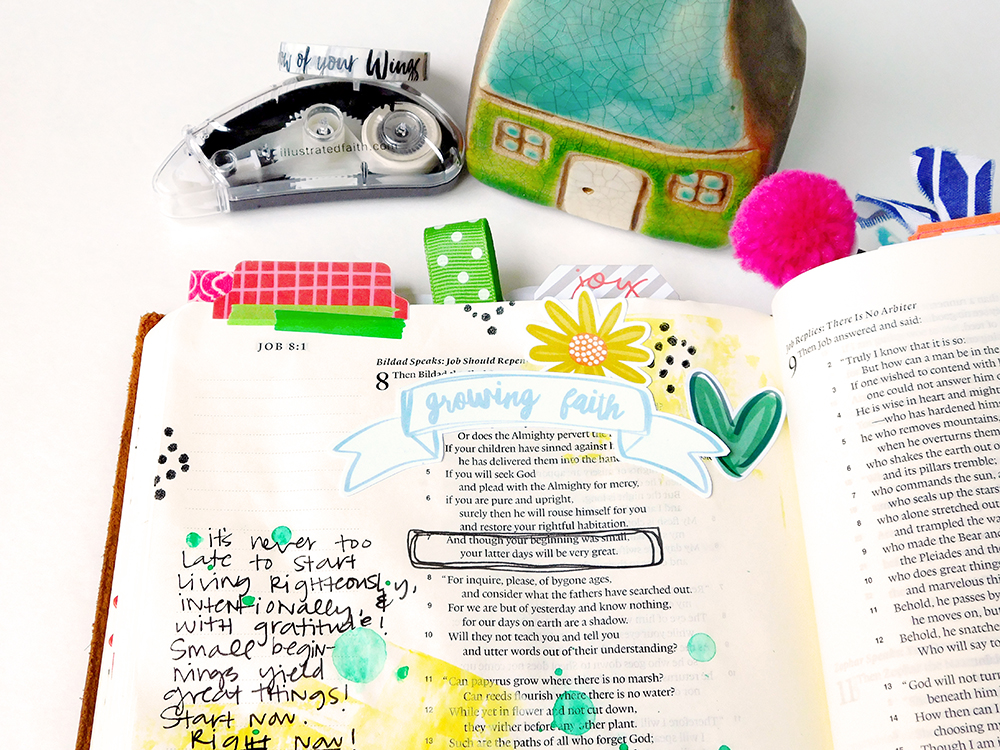 ow of your Wings
illustratedfaith.com
joy
JOB 8:1
Bildad Speaks: Job Should Repen
8 Then Bildad the
growing faith
Or does the Almighty pervert the
If your children have sinned against
he has delivered them into the hand
5 If you will seek God
and plead with the Almighty for mercy,
6 if you are pure and upright,
surely then he will rouse himself for you
and restore your rightful habitation.
7 And though your beginning was small,
your latter days will be very great.
8 “For inquire, please, of bygone ages,
and consider what the fathers have searched out.
9 For we are but of yesterday and know nothing,
for our days on earth are a shadow.
10 Will they not teach you and tell you
and utter words out of their understanding?
11 “Can papyrus grow where there is no marsh?
Can reeds flourish where there is no water?
12 While yet in flower and not cut down,
they wither before any other plant.
13 Such are the paths of all who forget God;
it's never too
late to start
living righteously,
intentionally, &
with gratitude!
Small begin-
nings yield
great things!
Start now.
Right now!
Job Replies: There Is No Arbiter
9 Then Job answered and said:
2 “Truly I know that it is so:
But how can a man be in the
3 If one wished to contend with
one could not answer him
4 He is wise in heart and might
—who has hardened him
5 he who removes mountains,
when he overturns them
6 who shakes the earth out o
and its pillars tremble;
7 who commands the sun, a
who seals up the stars
8 who alone stretched out
and trampled the wa
9 who made the Bear and
the Pleiades and th
10 who does great things
and marvelous thi
11 Behold, he passes by
he moves on, but
12 Behold, he snatche
Who will say to
13 “God will not turn
beneath him
14 How then can I
choosing m